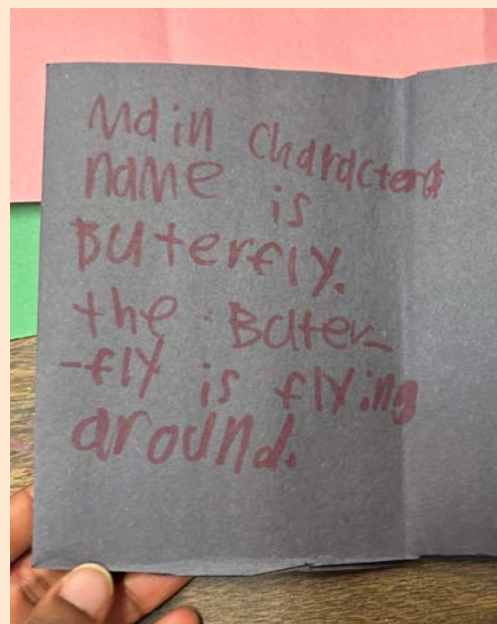 Main Characters
name is
Buterfly.
the Buter-
-fly is flying
around.